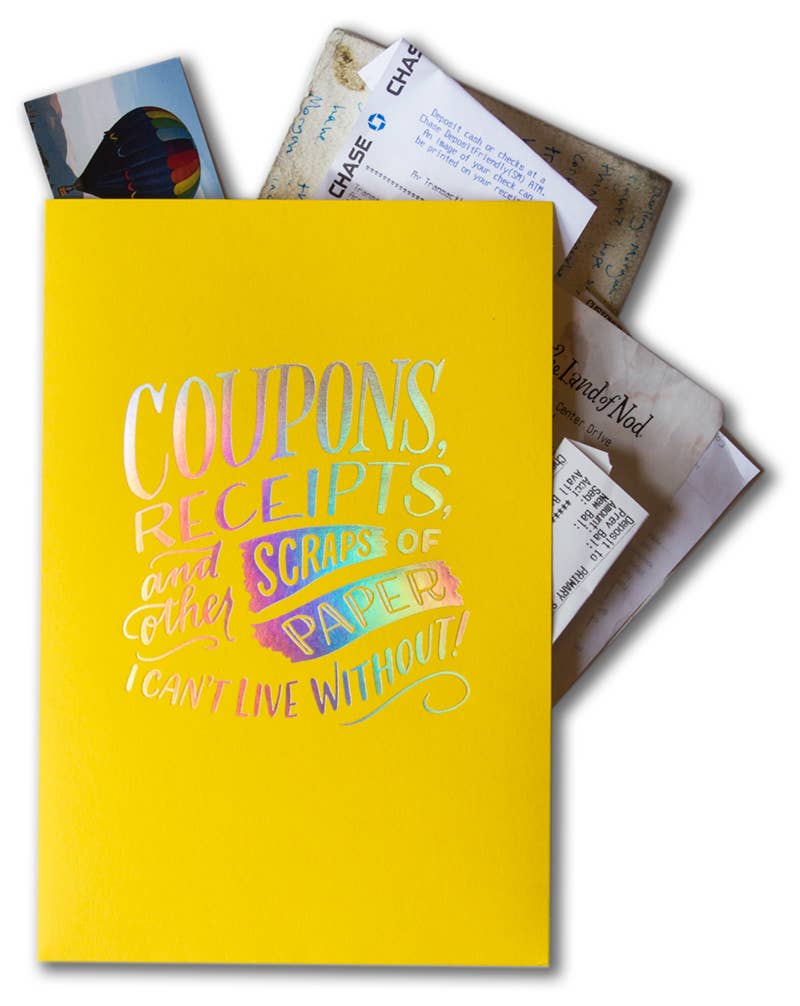 CHASE
CHAS
Deposit cash or checks at a
Chase DepositFriendly(SM) ATM.
An image of your check can
be printed on your recei
My Transacti
Land of Nod.
Center Drive
Deposit to PRIMARY
Prev Bal:
Amount:
New Bal:
Seq:
Acct
Avail B
COUPONS,
RECEIPTS,
and SCRAPS OF
other PAPER
I CAN'T LIVE WITHOUT!